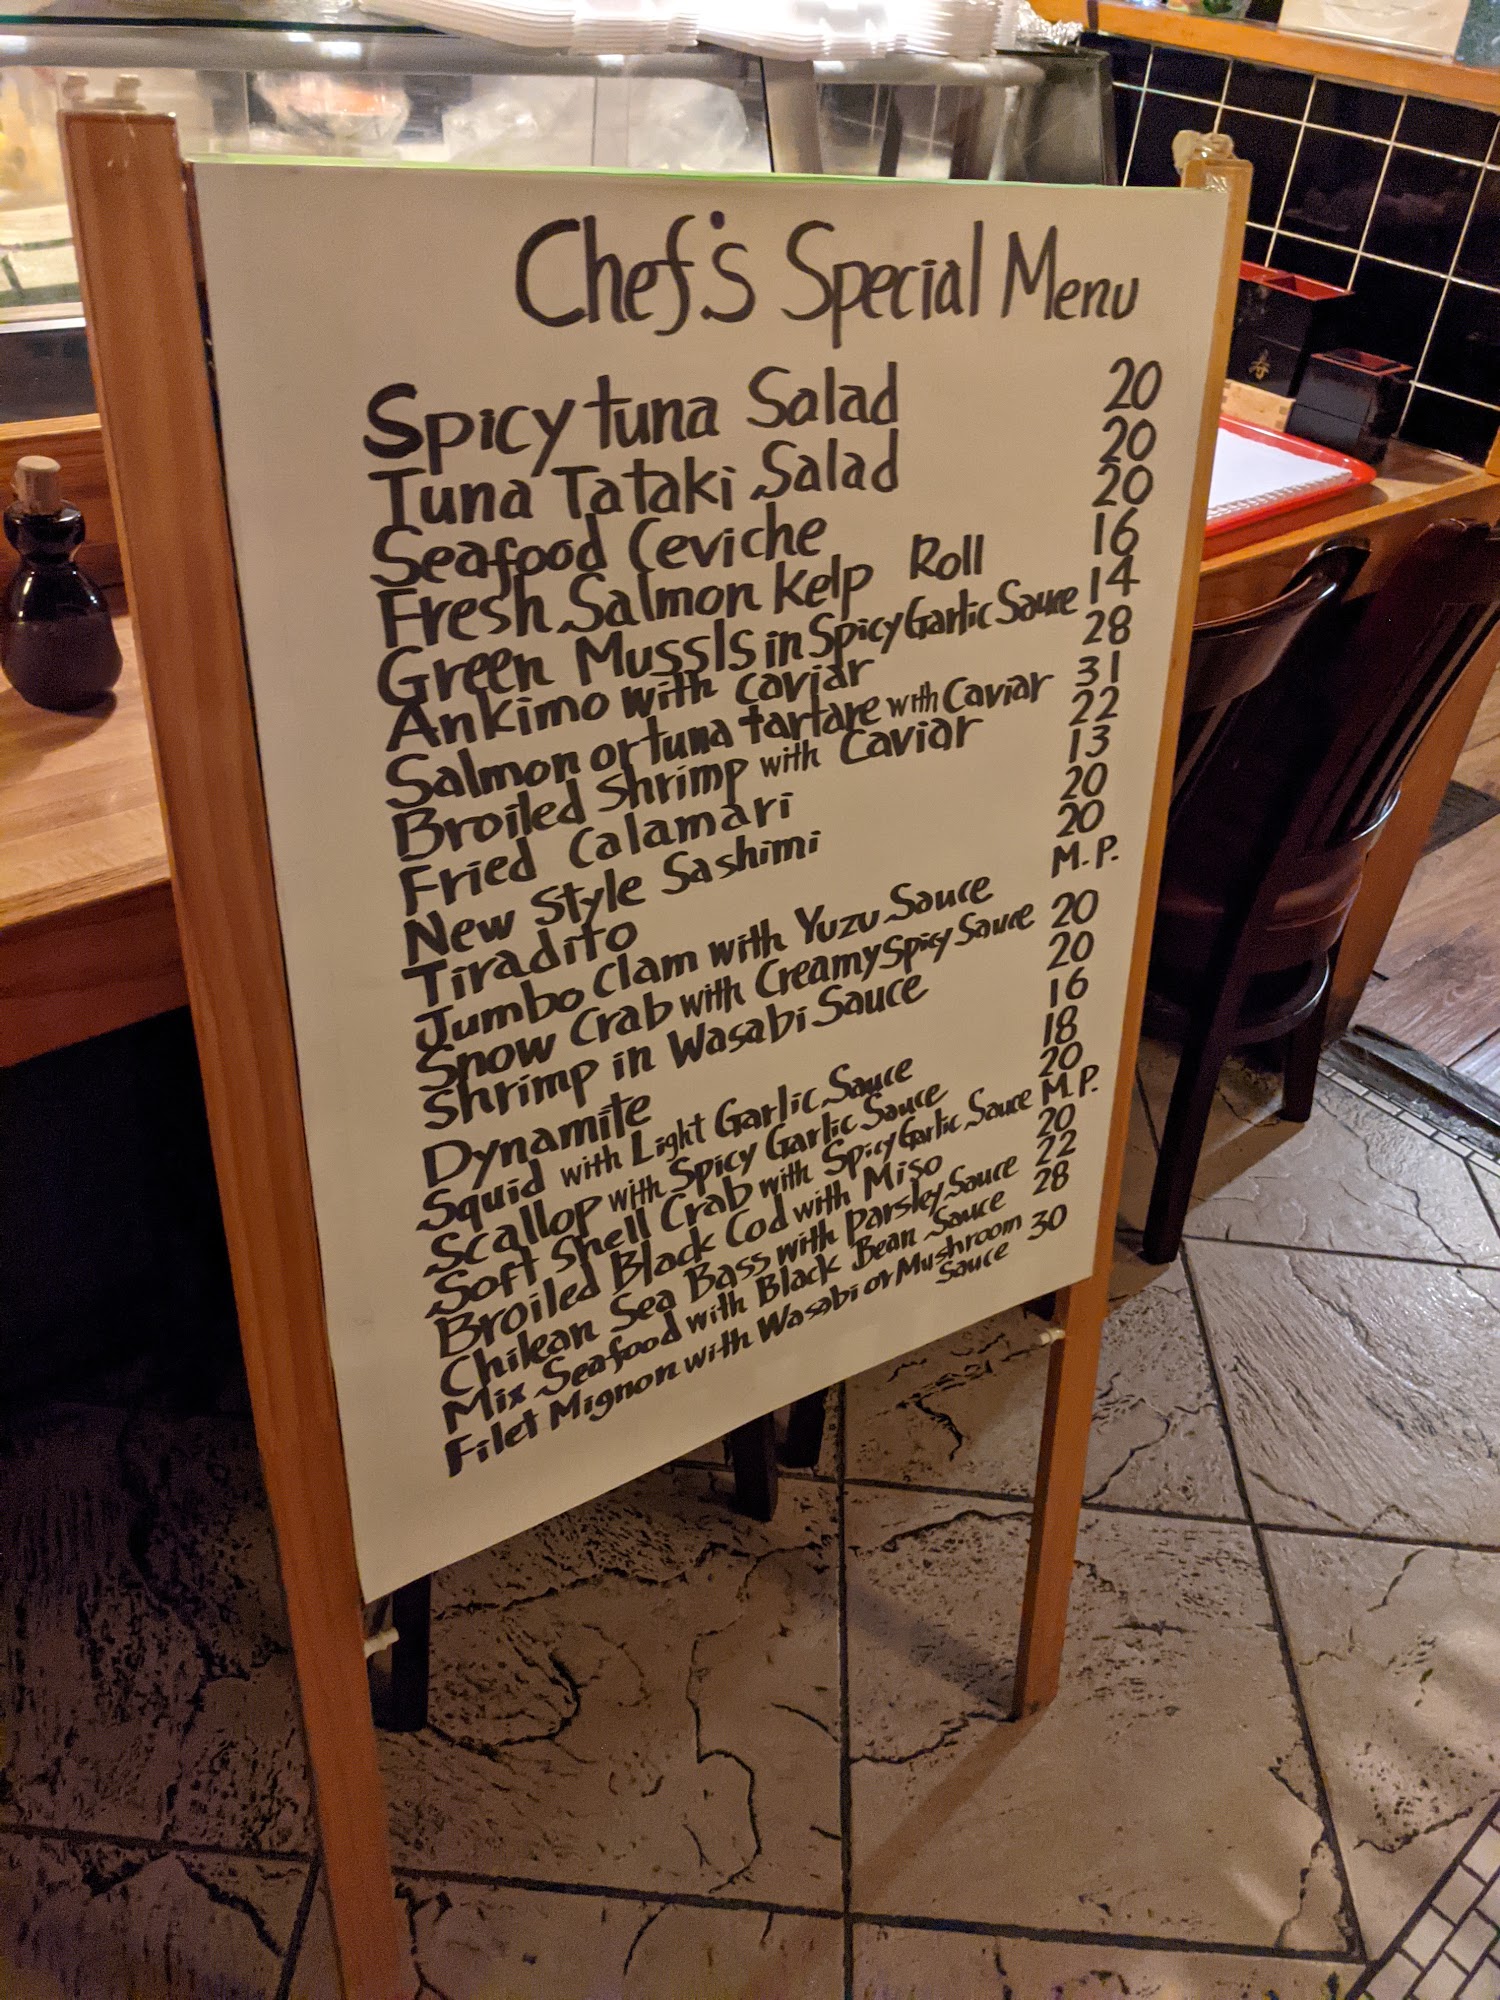 Chef's Special Menu
Spicy tuna Salad 20
Tuna Tataki Salad 20
Seafood Ceviche 20
Fresh Salmon Kelp Roll 16
Green Mussls in Spicy Garlic Sauce 14
Ankimo with caviar 28
Salmon or tuna tartare with Caviar 31
Broiled Shrimp with Caviar 22
Fried Calamari 13
New Style Sashimi 20
Tiradito 20
Jumbo Clam with Yuzu Sauce M.P.
Snow Crab with Creamy Spicy Sauce 20
Shrimp in Wasabi Sauce 20
Dynamite 16
Squid with Light Garlic Sauce 18
Scallop with Spicy Garlic Sauce 20
Soft Shell Crab with Spicy Garlic Sauce M.P.
Broiled Black Cod with Miso 20
Chilean Sea Bass with Parsley Sauce 22
Mix Seafood with Black Bean Sauce 28
Filet Mignon with Wasabi or Mushroom 30
Sauce